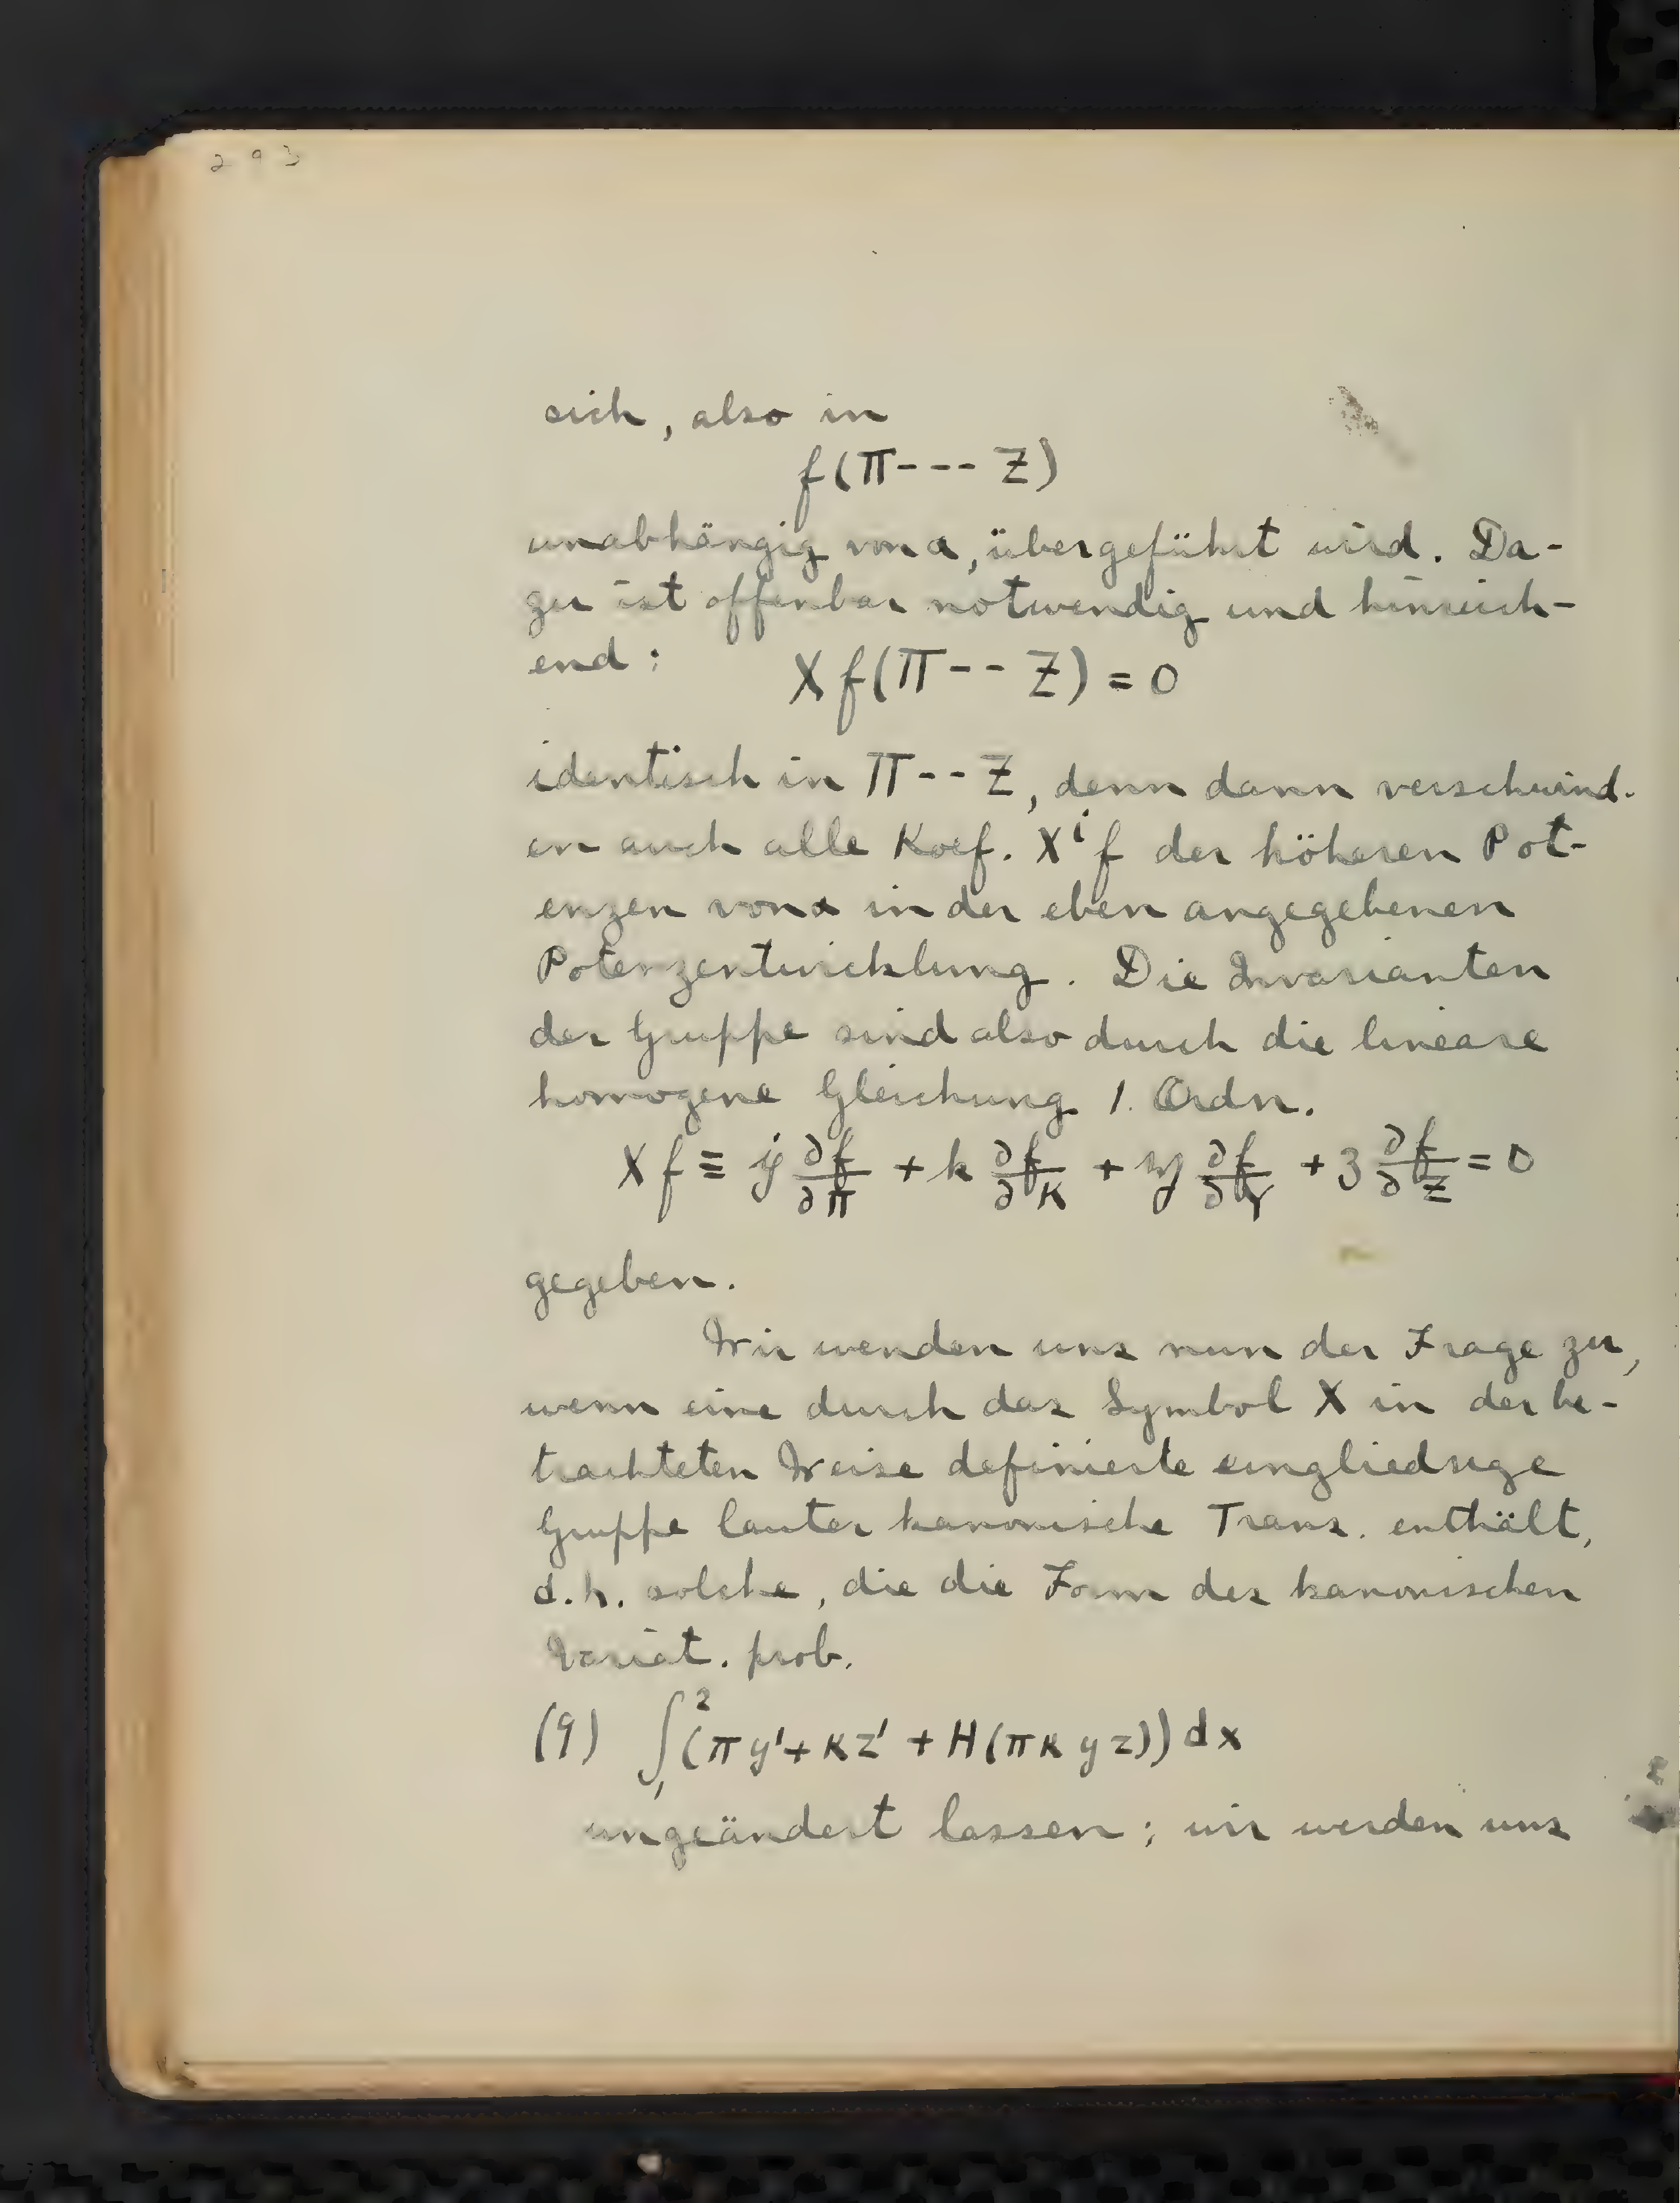 293
sich, also in
f(Π--- Z)
unabhängig von α, übergeführt wird. Da-
zu ist offenbar notwendig und hinreich-
end: Xf(Π-- Z) = 0
identisch in Π-- Z, denn dann verschwind-
en auch alle Koef. Xⁱf der höheren Pot-
enzen von α in der eben angegebenen
Potenzentwicklung. Die Invarianten
der Gruppe sind also durch die lineare
homogene Gleichung 1. Ordn.
Xf ≡ 𝔭 ∂f/∂Π + k ∂f/∂K + 𝔶 ∂f/∂Y + 𝔷 ∂f/∂Z = 0
gegeben.
Wir wenden uns nun der Frage zu,
wenn eine durch das Symbol X in der be-
trachteten Weise definierte eingliedrige
Gruppe lauter kanonische Trans. enthält,
d.h. solche, die die Form des kanonischen
Variat. prob.
(9) ∫₁²(πy'+κz' + H(πκyz))dx
ungeändert lassen; wir werden uns